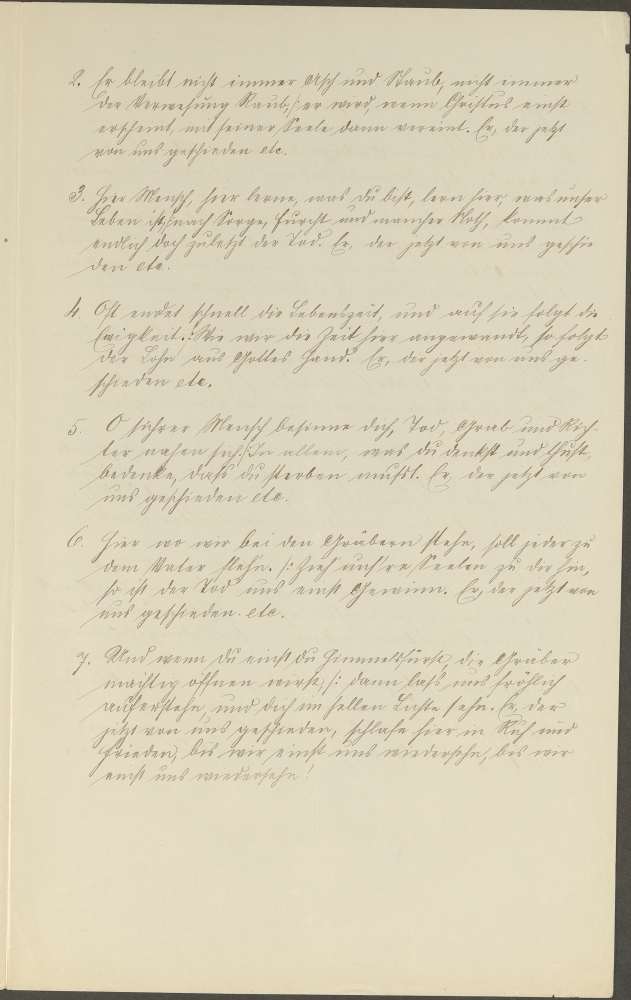 2. Er bleibt nicht immer Asch und Staub, nicht immer
der Verwesung Raub, /: er wird, wenn Christus einst
erscheint, mit seiner Seele dann vereint. Er, der jetzt
von uns geschieden etc.
3. Hier Mensch, hier lerne, was du bist, lern hier, was unser
Leben ist, /: nach Sorge, Furcht und mancher Noth, kommt
endlich doch zuletzt der Tod. Er, der jetzt von uns geschie
den etc.
4. Oft endet schnell die Lebenszeit, und auf sie folgt die
Ewigkeit. /: Wie wir die Zeit hier angewandt, so folgt
der Lohn aus Gottes Hand. Er, der jetzt von uns ge-
schieden etc.
5. O sichrer Mensch besinne dich, Tod, Grab und Rich-
ter nahen sich. /: In allem, was du denkst und thust,
bedenke, daß du sterben mußt. Er, der jetzt von
uns geschieden etc.
6. Hier wo wir bei den Gräbern stehn, soll jeder zu
dem Vater flehn. /: Zieh' uns're Seelen zu dir hin,
so ist der Tod uns einst Gewinn. Er, der jetzt von
uns geschieden. etc.
7. Und wenn du einst du Himmelsfürst, die Gräber
mächtig öffnen wirst, /: dann laß uns fröhlich
auferstehn, und dich im hellen Lichte sehn. Er, der
jetzt von uns geschieden, schlafe hier in Ruh und
Frieden, bis wir einst uns wiedersehn, bis wir
einst uns wiedersehn!